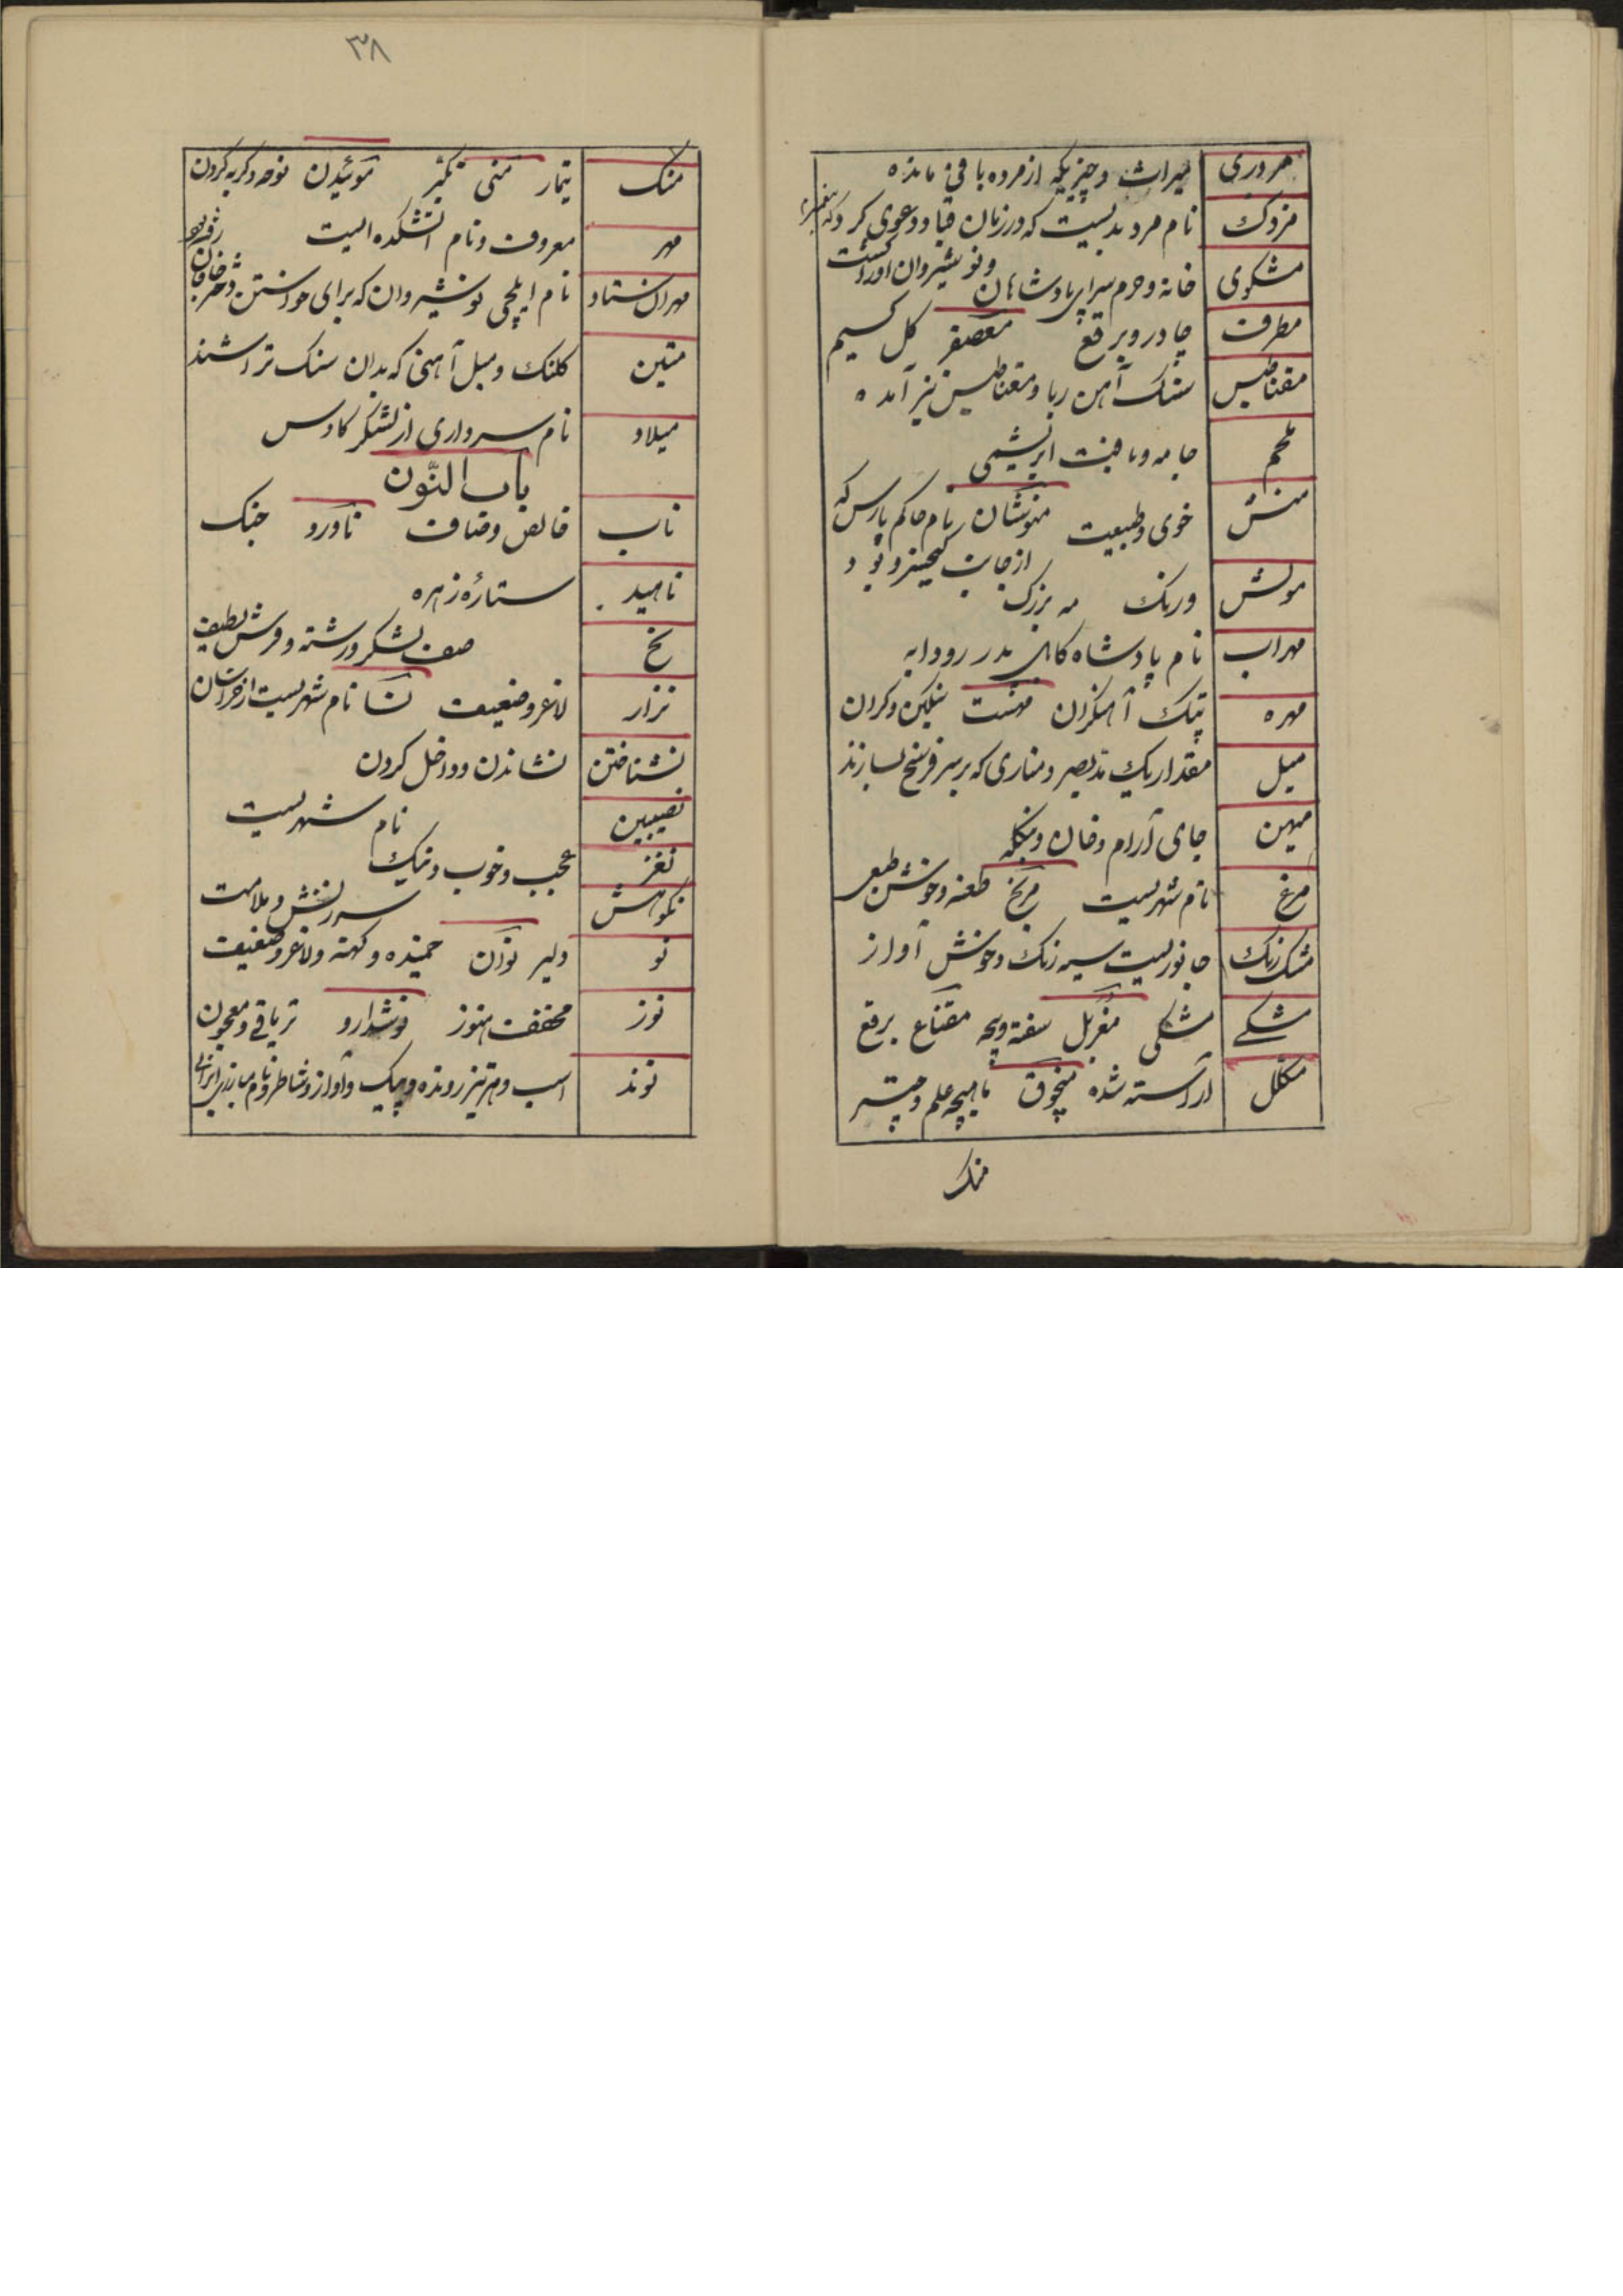 مردری میراث و چیزیکه از مرده باقی مانده
مزدک نام مرد بدیست که در زمان قباد دعوی کرد که پیغمبرم
و نوشیروان اورا کشت
مشکوی خانه و حرم سرای پادشاهان
مطرف چادر و برقع معصفر کل
مقناطیس سنک آهن ربا و مقناطیس نیز آمده
ملحم جامه و بافت ابریشمی
منش خوی و طبیعت مهنوشان نام حاکم پارس که
از جانب کیخسرو بود
مه بزرک
مهراب نام پادشاه کابل پدر رودابه
مهره پتک آهنکران سنکین و کران
میل مقدار یک مد بصر و مناری که بر سر فرسخ بسازند
میهن جای آرام و خان و بنکله
مرغ نام شهریست طعنه و خوش طبعی
مشک رنک جانوریست سیه رنک و خوش آواز
مشکی مشکی مغربل مقناع برقع
مکلل آراسته شده منجوق ماهیچه علم و چتر
منک
۳۸
منک تیمار منی تکبر موئیدن نوحه و کریه کردن
مهر معروف و نام آتشکده ایست
مهران ستاد نام ایلچی نوشیروان که برای خواستن دختر خاقان
متین کلنک و میل آهنی که بدان سنک تراشند
میلاد نام سرداری از لشکر کاوس
باب النّون
ناب خالص و صاف ناورد جنک
ناهید ستارهٔ زهره
نخ صف لشکر و رشته و فرش لطیف
نزار لاغر و ضعیف نسا نام شهریست از خراسان
نشناختن نشاندن و داخل کردن
نصیبین نام شهریست
نغز عجب و خوب و نیک
نکوهش سرزنش و ملامت
نو دلیر نوان خمیده و کهنه و لاغر و ضعیف
نوز مخفف هنوز نوشدارو تریاقی و معجون
نوند اسب و هر تیز رونده و پیک و آواز و شاطر و نام مبارزی ایرانی